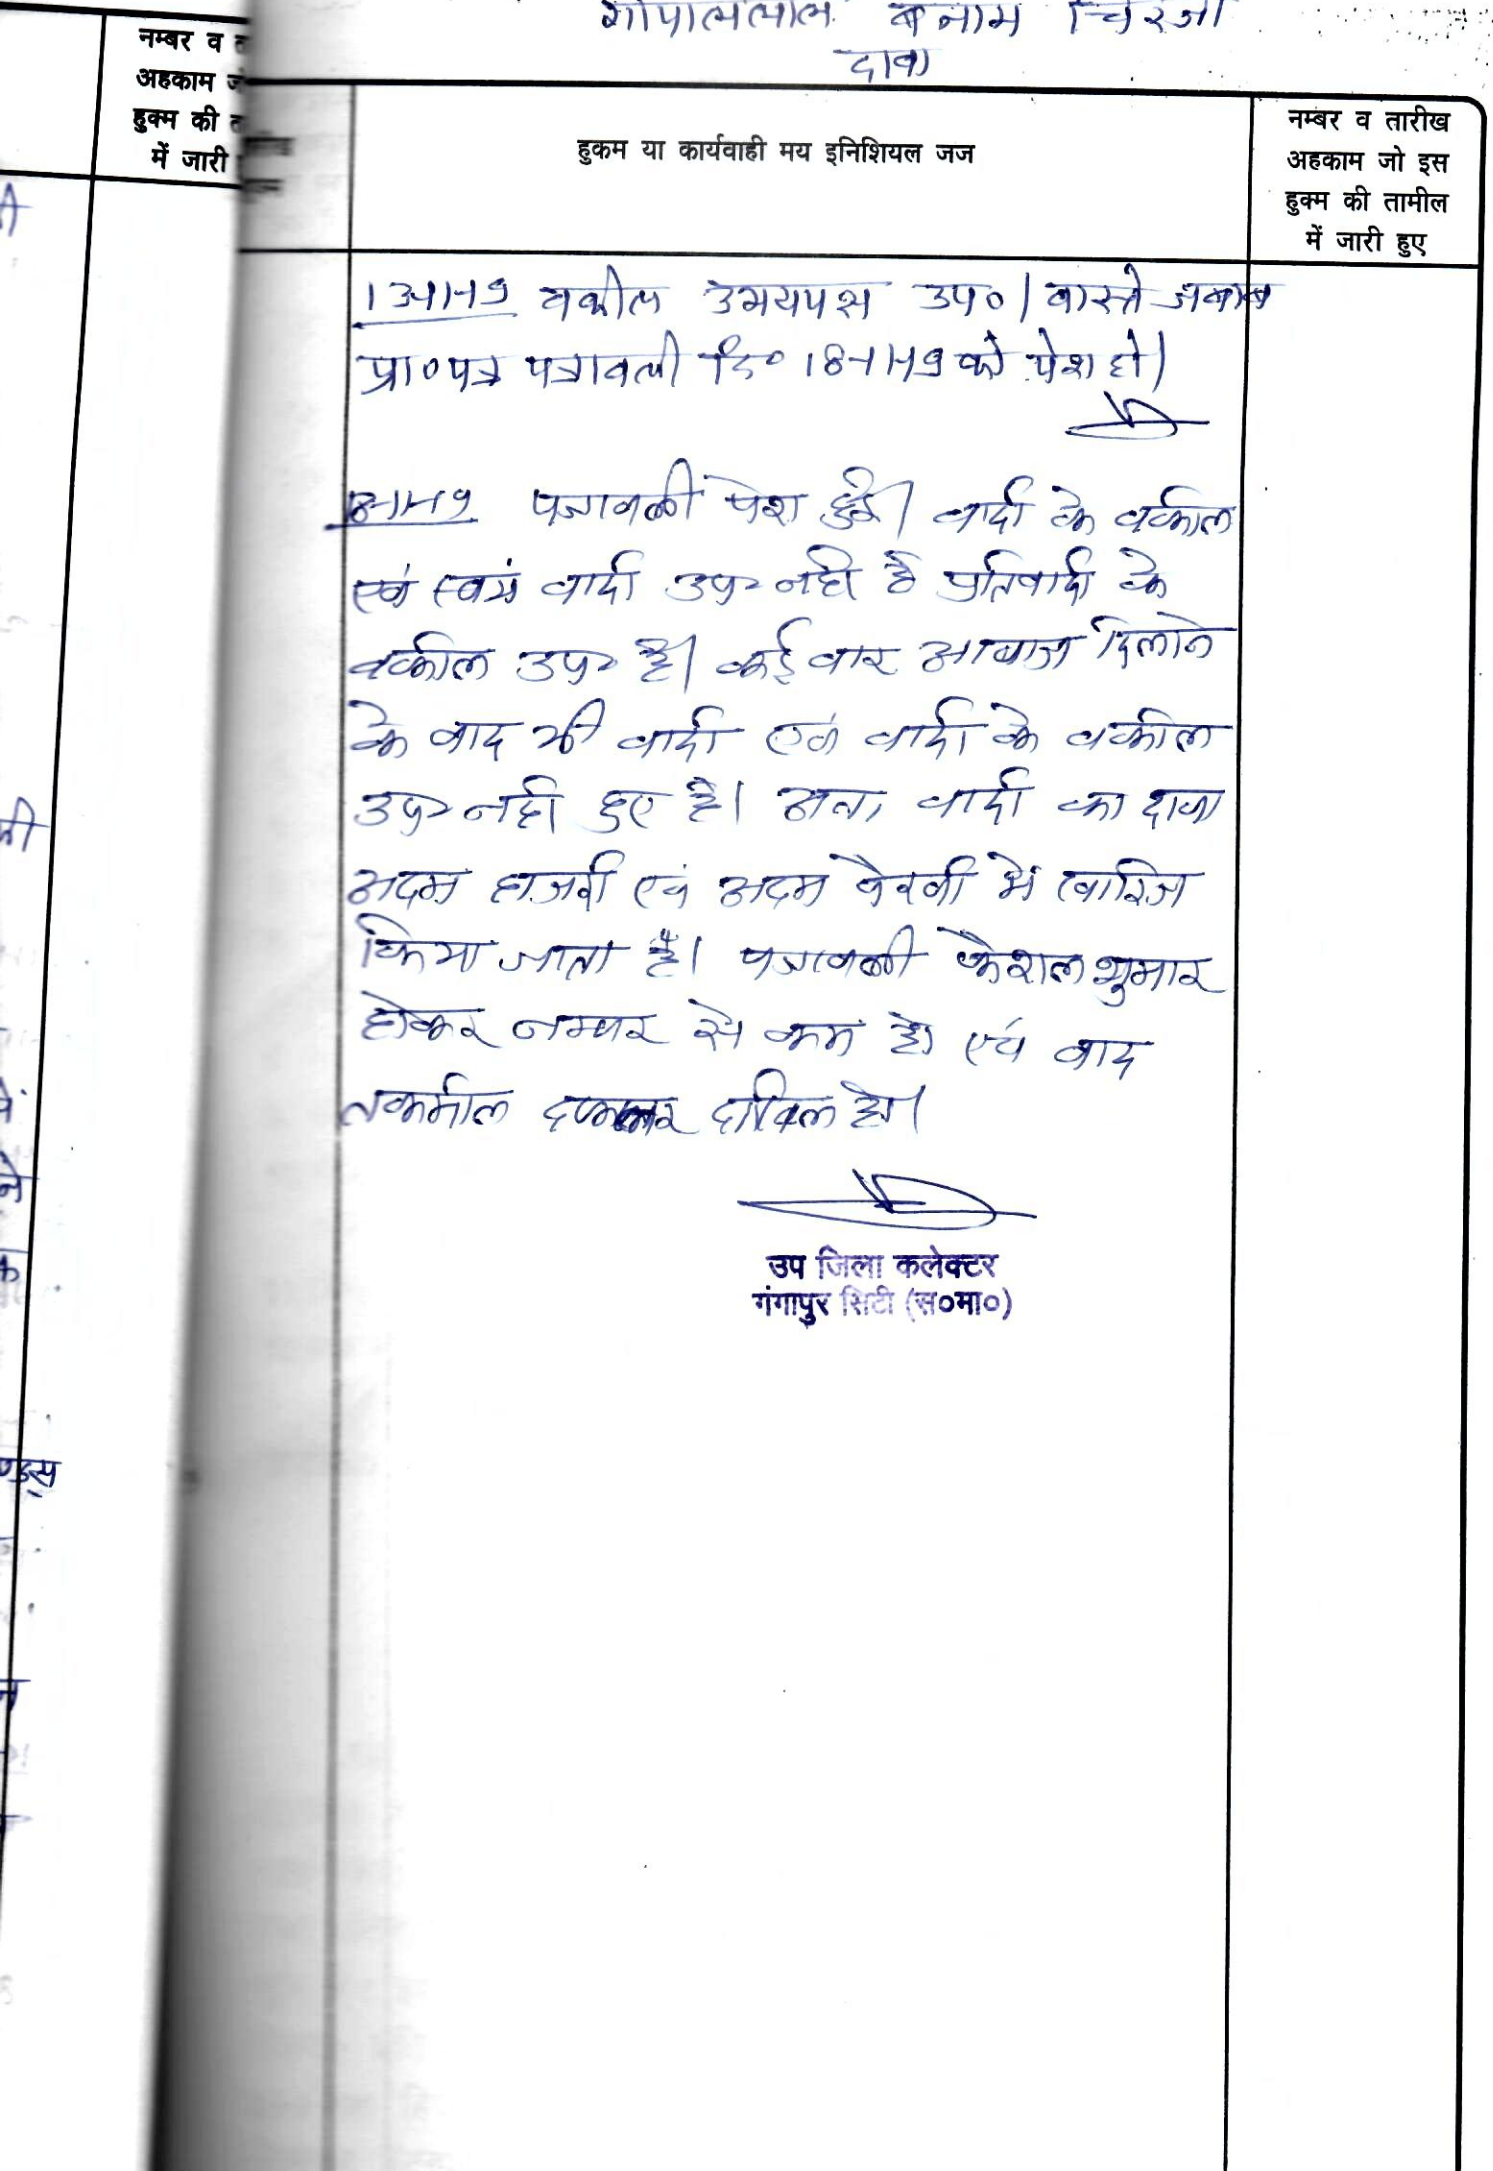 गोपाललाल बनाम चिरंजी
दावा
नम्बर व
अहकाम
हुक्म की
में जारी
हुकम या कार्यवाही मय इनिशियल जज
नम्बर व तारीख
अहकाम जो इस
हुक्म की तामील
में जारी हुए
वकील उभयपक्ष उप० । वास्ते जबाब
प्रा०पत्र पत्रावली दि० 18-1-19 को पेश हो।
पत्रावली पेश हुई। वादी के वकील
एवं स्वयं वादी उप० नही है प्रतिवादी के
वकील उप० है। कई बार आवाज दिलाने
के बाद भी वादी एवं वादी के वकील
उप० नही हुए है। अतः वादी का दावा
अदम हाजरी एवं अदम पैरवी में खारिज
किया जाता है। पत्रावली फैशल शुमार
होकर नम्बर से कम हो एवं बाद
तकमील दफ्तर दाखिल हो।
उप जिला कलेक्टर
गंगापुर सिटी (स०मा०)